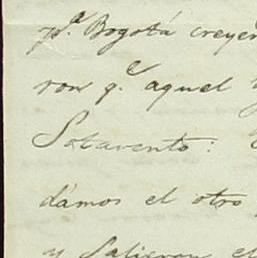 pª. Bogotá creye
ron q.e aquel
Sotavento:
dámos el otro
y Salieron el